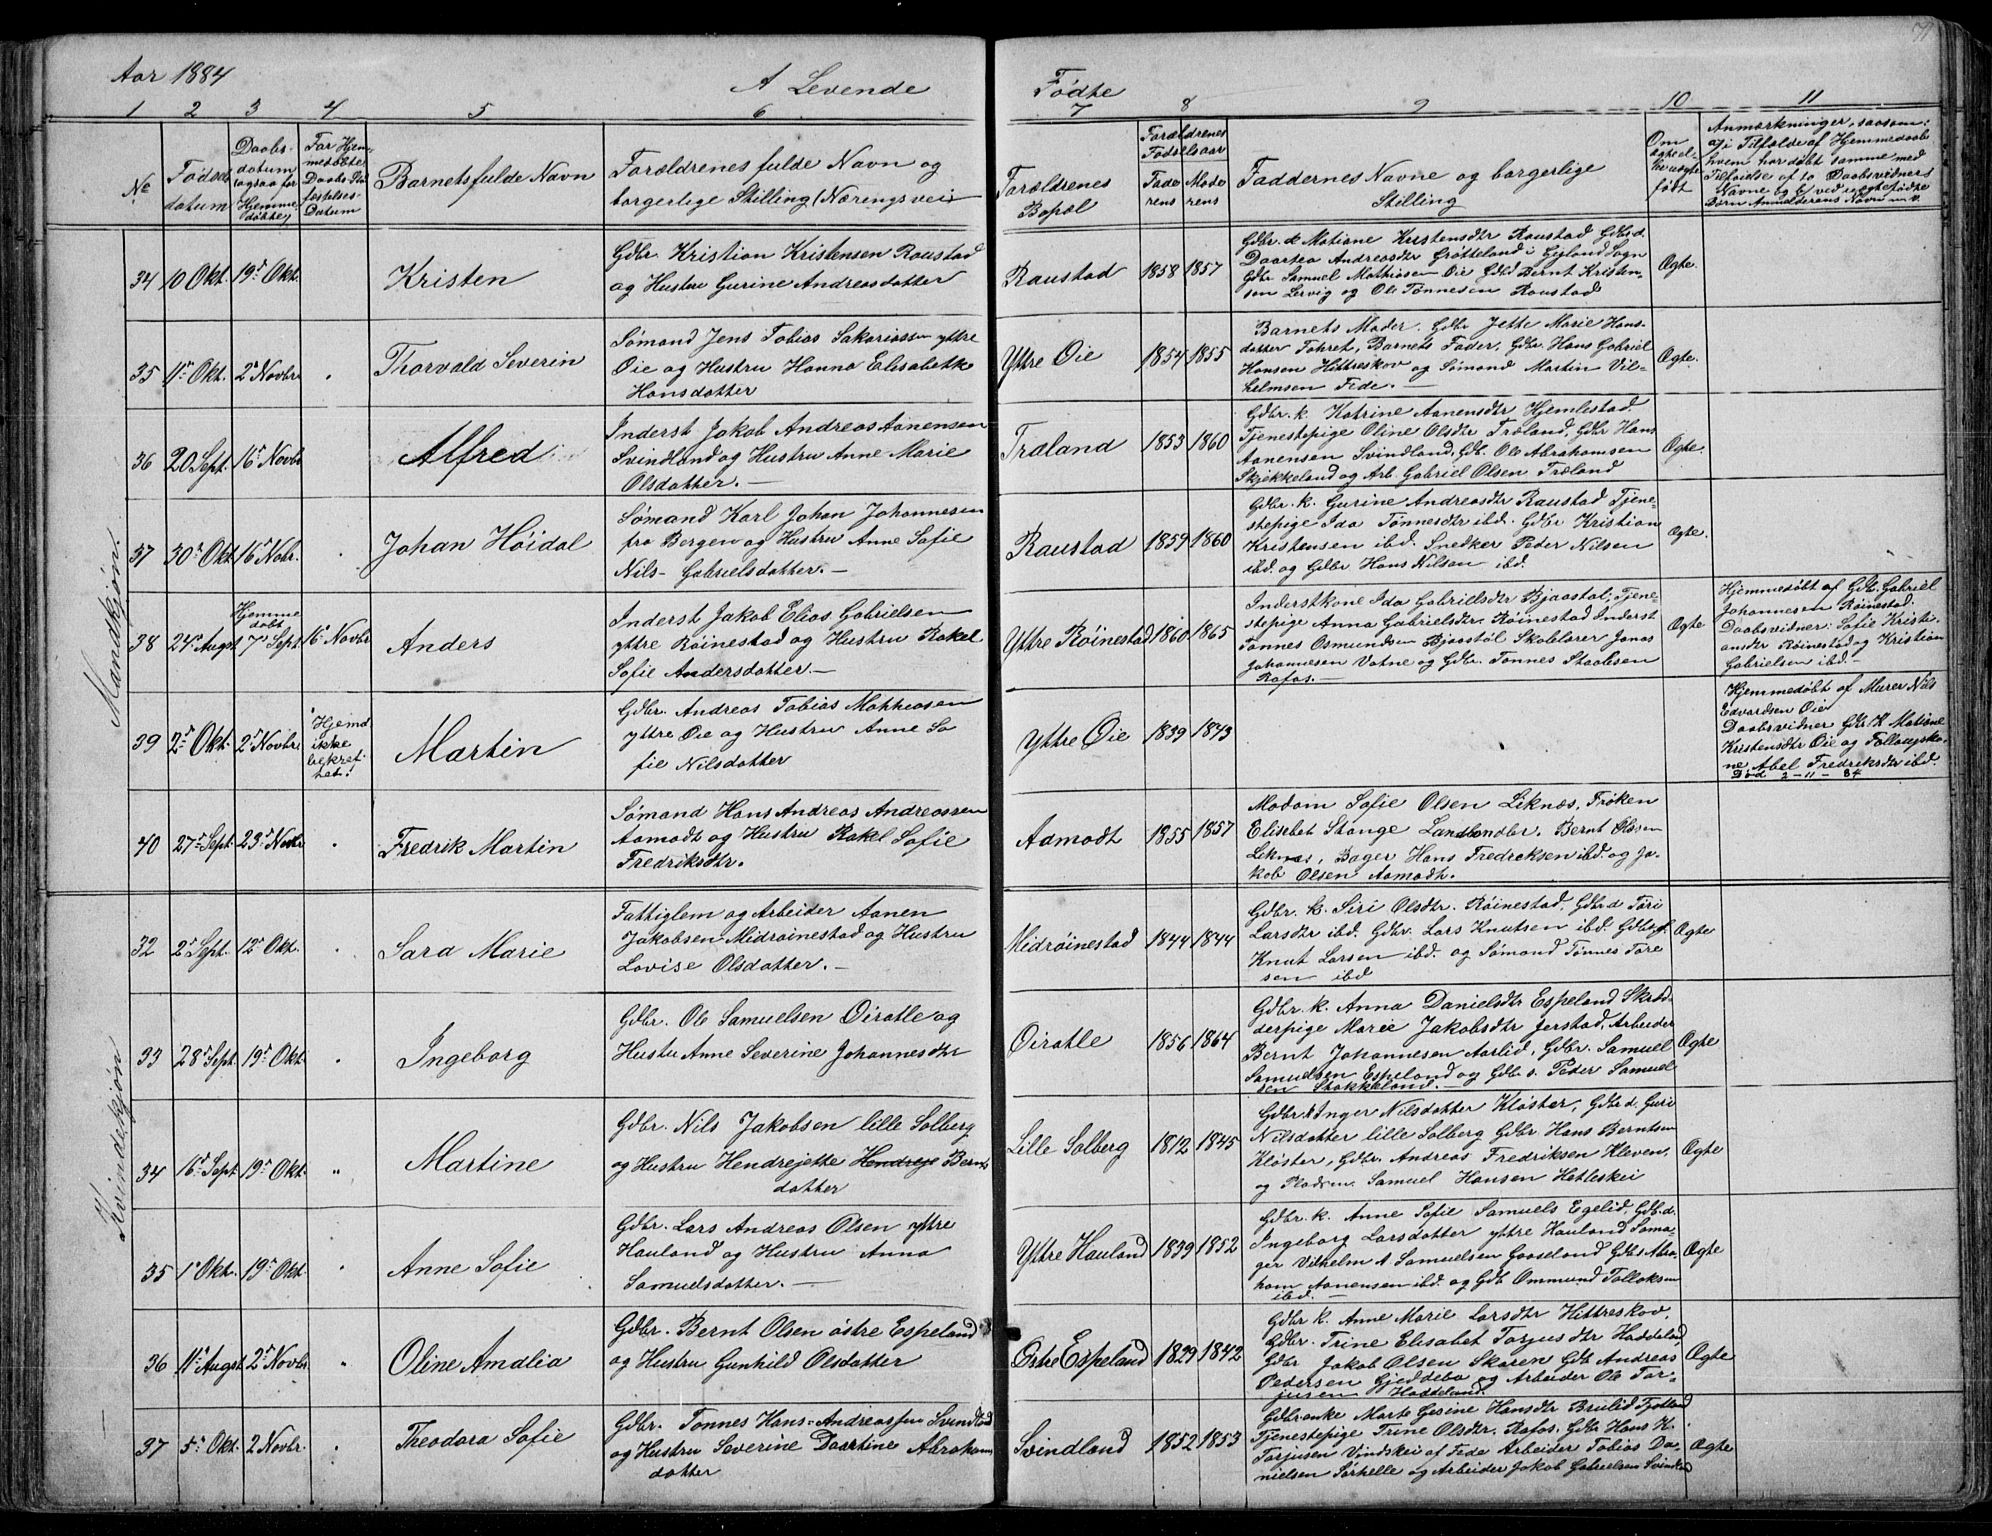 71
Aar 1884
A Levende
Fødte
1 2 3 4 5 6 7 8 9 10 11
No
Fødsels
datum
Daabs-
datum
(ogsaa for
Hjemme-
døbte)
For Hjem-
medøbte
Daabs Be
festelses-
Datum
Barnets fulde Navn
Forældrenes fulde Navn og
borgerlige Stilling (Næringsvei)
Forældrenes
Bopæl
Forældrenes
Fødselsaar
Fade
rens
Mode
rens
Faddernes Navne og borgerlige
Stilling
Om
ægte el.
uægte
født
Anmærkninger, saasom:
a) i Tilfælde af Hjemmedaab
hvem har døbt samme med
Tilføielse af to Daabsvidners
Navne og b) ved uægtefødte
Børn Anmelderens Navn m. v.
Mandkjøn.
34 10 Okt. 19de Okt.
Kristen
Gdbr. Kristian Kristensen Raustad
og Hustru Gurine Andreasdatter
Raustad 1858 1857
Gdbr. d. Matiane Kristensdtr Raustad Gdbr. d.
Daartea Andreasdtr Grøtteland i Gyland Sogn
Gdbr. Samuel Mathiasen Øie Gdbr Bernt Kristen-
sen Lervig og Ole Tønnesen Raustad
Ægte.
35 11te Okt. 2den Novbr
Thorvald Severin
Sømand Jens Tobias Sakariassen yttre
Øie og Hustru Hanna Elisabeth
Hansdatter
Yttre Øie 1854 1855
Barnets Moder. Gdbr Jette Marie Hans-
datter Tohret, Barnets Fader, Gdbr. Hans Gabriel
Hansen Hittreskov og Sømand Martin Vil-
helmsen Fede. —
Ægte.
36 20 Sept. 16de Novbr
Alfred
Inderst Jakob Andreas Aanensen
Svindland og Hustru Anne Marie
Olsdatter. —
Træland 1853 1860
Gdbr. k. Katrine Aanensdtr Hjemlestad.
Tjenestepige Oline Olsdtr Træland, Gdbr Hans
Aanensen Svindland, Gdb. Ole Abrahamsen
Skjekkeland og Arb. Gabriel Olsen Træland
Ægte.
37 30te Okt 16de Novbr.
Johan Høidal
Sømand Karl Johan Johannesen
fra Bergen og Hustru Anne Sofie
Nils- Gabrielsdatter. —
Raustad 1859 1860
Gdbr. k. Gurine Andreasdtr Raustad Tjene-
stepige Ida Tønnesdtr ibd. Gdbr Kristian
Kristensen ibd. Snedker Peder Nilsen
ibd. og Gdbr Hans Nilsen ibd.
Ægte.
38 24de Augst
Hjemme
døbt
7de Sept
16de Novbr
Anders
Inderst Jakob Elias Gabrielsen
yttre Røinestad og Hustru Rakel
Sofie Andersdatter. —
Yttre Røinestad 1860 1865
Inderstkone Ida Gabrielsdtr Bjaastøl, Tjene-
stepige Anna Gabrielsdtr. Røinestad Inderst
Tønnes Osmundsen Bjaastøl Skolelærer Jonas
Johannesen Vatne og Gdbr. Tønnes Staalesen
Rafos. —
Ægte
Hjemmedøbt af Gdbr. Gabriel
Johannesen Røinestad.
Daabsvidner: Sofie Kristi-
ansdtr Røinestad og Kristian
Gabrielsen ibd. —
39 2den Okt. 2den Novbr
"Hjemd
ikke
bekref
tet!
Martin
Gdbr. Andreas Tobias Mathiasen
yttre Øie og Hustru Anne So
fie Nilsdatter
Yttre Øie 1839 1843
Hjemmedøbt af Murer Nils
Edvardsen Øie
Daabsvidner Gdbr K Matiane
Kristensdtr Øie og Føllaugsko-
ne Abel Fredriksdtr ibd.
Død 2-11-84
40 27de Sept. 23de Novbr
Fredrik Martin
Sømand Hans Andreas Andreassen
Aamodt og Hustru Rakel Sofie
Fredriksdtr.
Aamodt 1855 1857
Madam Sofie Olsen Liknæs, Frøken
Elisebet Stange Landhandlr. Bernt Olsen
Liknæs, Bager Hans Fredreksen ibd. og Ja-
kob Olsen Aamodt.
Kvindekjøn
32 2den Sept. 12te Okt.
Sara Marie
Fattiglem og Arbeider Aanen
Jakobsen Midrøinestad og Hustru
Lovise Olsdatter. —
Midrøinestad 1844 1844
Gdbr. k. Siri Olsdtr. Røinestad, Gdbr d Tøri
Larsdtr ibd. Gdbr. Lars Knutsen ibd. Gdbr. f.
Knut Larsen ibd. og Sømand Tønnes Tore
sen ibd
Ægte
33 28de Sept. 19de Okt
Ingeborg
Gdbr. Ole Samuelsen Øiratle og
Hustr Anne Severine Johannesdtr
Øiratle 1856 1864
Gdbr. k. Anna Danielsdtr Espeland Skræd-
derpige Marie Jakobsdtr Jerstad, Arbeider
Bernt Johannesen Aarlid, Gdbr. Samuel
Samuelsen Espeland og Gdbr s. Peder Samuel
sen Stakkeland. —
Ægte
34 16de Sept 19de Okt.
Martine
Gdbr. Nils Jakobsen lille Solberg
og Hustru Hendrejette Hendreje Bernt
datter
Lille Solberg 1812 1845
Gdbr. k Inger Nilsdatter Kløster, Gdbr d. Guri
Nilsdatter lille Solberg Gdbr. Hans Berntsen
Kløster, Gdbr. Andreas Fredriksen Kleven,
og Samuel Hansen Hetleskei
Ægte
35 1ste Okt. 19de Okt.
Anne Sofie
Gdbr. Lars Andreas Olsen yttre
Hauland og Hustru Anna
Samuelsdatter. —
Yttre Hauland 1839 1852
Gdbr. k. Anne Sofie Samuels Egelid, Gdbr. d.
Ingeborg Larsdatter yttre Hauland Sama-
ger Vilhelm A Samuelsen Gaaseland Gdbr Abra-
ham Aanensen ibd. og Gdb Ommund Tollaksen
ibd. —
Ægte
36 11te Augst 2den Novbr
Oline Amalia
Gdbr. Bernt Olsen østre Espeland
og Hustru Gunhild Olsdatter
Østre Espeland 1829 1842
Gdbr k. Anne Marie Larsdtr Hittreskov,
Gdbr. Trine Elisabet Torjusdtr Haddeland,
Gdbr Jakob Olsen Skaren Gdb Andreas
Pedersen Gjeddebo og Arbeider Ole Tor-
jusen Haddeland.
Ægte
37 5te Okt. 2 Novbr.
Theodora Sofie
Gdbr. Tønnes Hans-Andreassen Svindland
og Hustru Severine Daartine Abraham
datter
Svindland 1852 1853
Gdbr.enke Marte Gesine Hansdtr Brulid Fjotland
Tjenestepige Trine Olsdtr. Rafos. Gdbr Hans K.
Torjusen Vindskei af Feda Arbeider Tobias Da-
nielsen Sørhelle og Arbeider Jakob Gabrielsen Svindland
Ægte